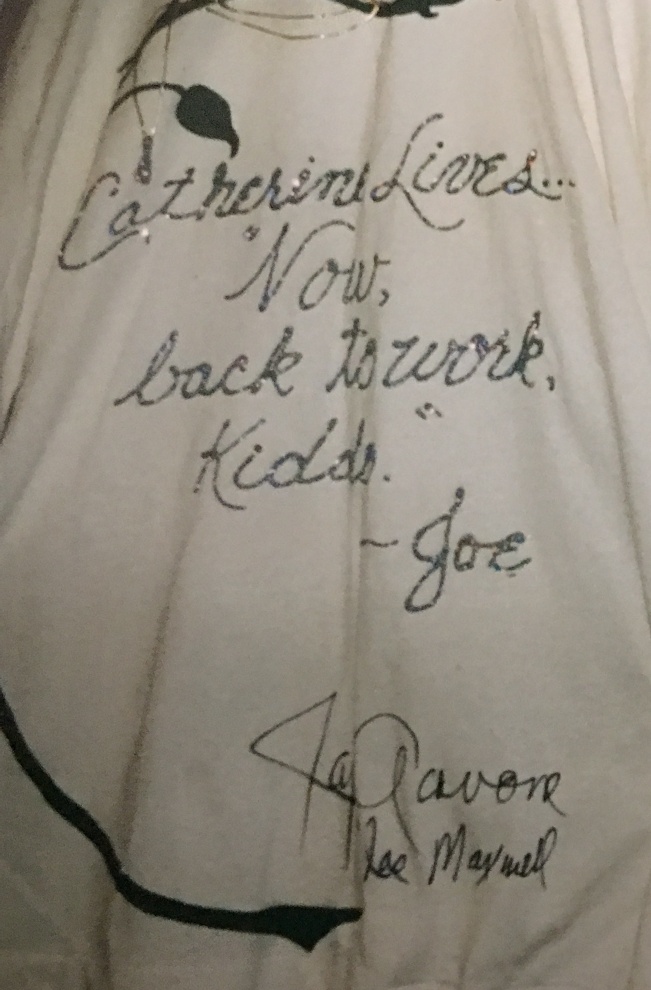 Catherine Lives...
"Now,
back to work,
Kidds."
~Joe
Jay Acavone
Joe Maxwell